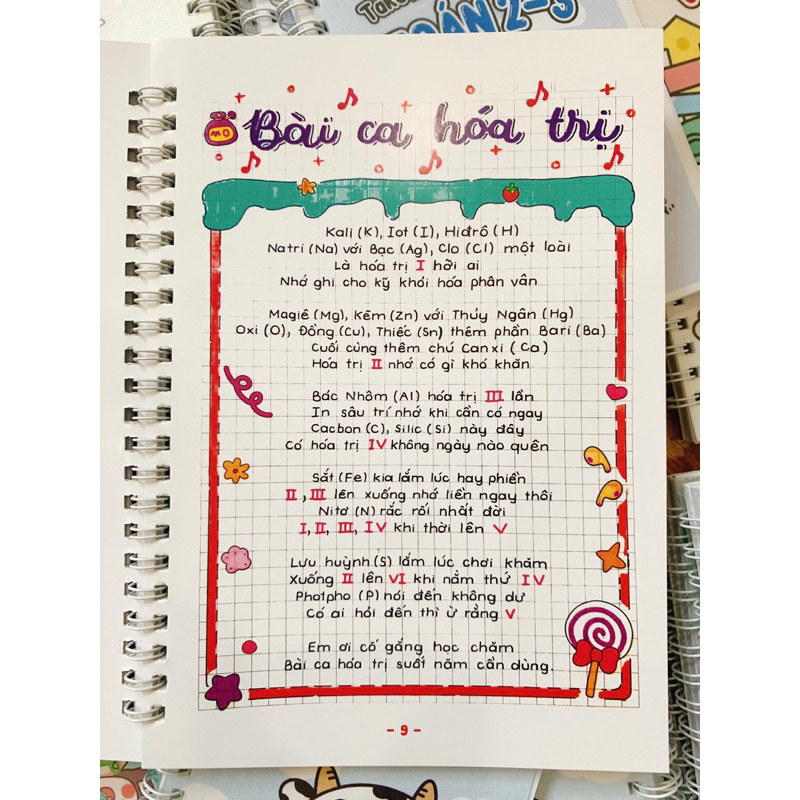 TOÁN 2-3
MO
Bài ca hóa trị
Kali (K), Iot (I), Hiđrô (H)
Natri (Na) với Bạc (Ag), Clo (Cl) một loài
Là hóa trị I hỡi ai
Nhớ ghi cho kỹ khỏi hóa phân vân
Magiê (Mg), Kẽm (Zn) với Thủy Ngân (Hg)
Oxi (O), Đồng (Cu), Thiếc (Sn) thêm phần Bari (Ba)
Cuối cùng thêm chú Canxi (Ca)
Hóa trị II nhớ có gì khó khăn
Bác Nhôm (Al) hóa trị III lần
In sâu trí nhớ khi cần có ngay
Cacbon (C), Silic (Si) này đây
Có hóa trị IV không ngày nào quên
Sắt (Fe) kia lắm lúc hay phiền
II, III lên xuống nhớ liền ngay thôi
Nitơ (N) rắc rối nhất đời
I, II, III, IV khi thời lên V
Lưu huỳnh (S) lắm lúc chơi khăm
Xuống II lên VI khi nằm thứ IV
Photpho (P) nói đến không dư
Có ai hỏi đến thì ừ rằng V
Em ơi cố gắng học chăm
Bài ca hóa trị suốt năm cần dùng.
- 9 -